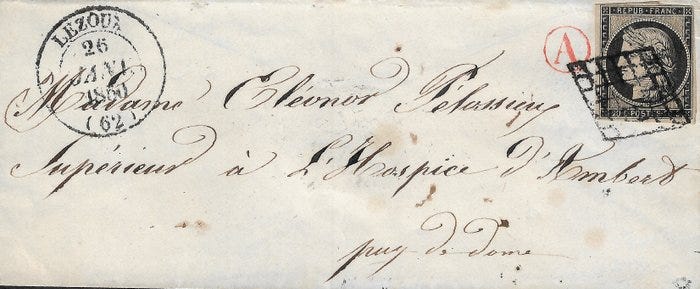 LEZOUX
26
JANV.
1850
(62)
A
REPUB. FRANC.
20 POSTES 20
Madame Eléonor Pélassieu
Supérieur à L'Hospice d'Ambert
puy de dome